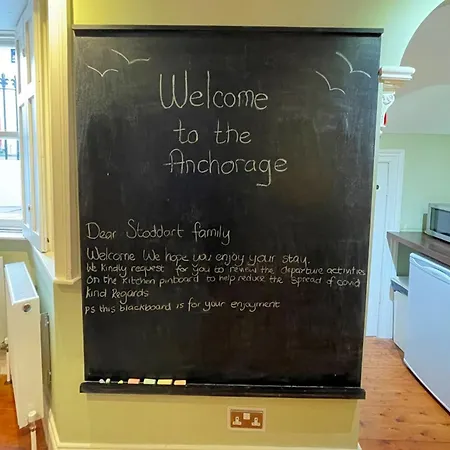 Welcome
to the
Anchorage
Dear Stoddart family
Welcome We hope you enjoy your stay.
We kindly request for you to review the departure activities
on the kitchen pinboard to help reduce the spread of covid
kind Regards
ps this blackboard is for your enjoyment